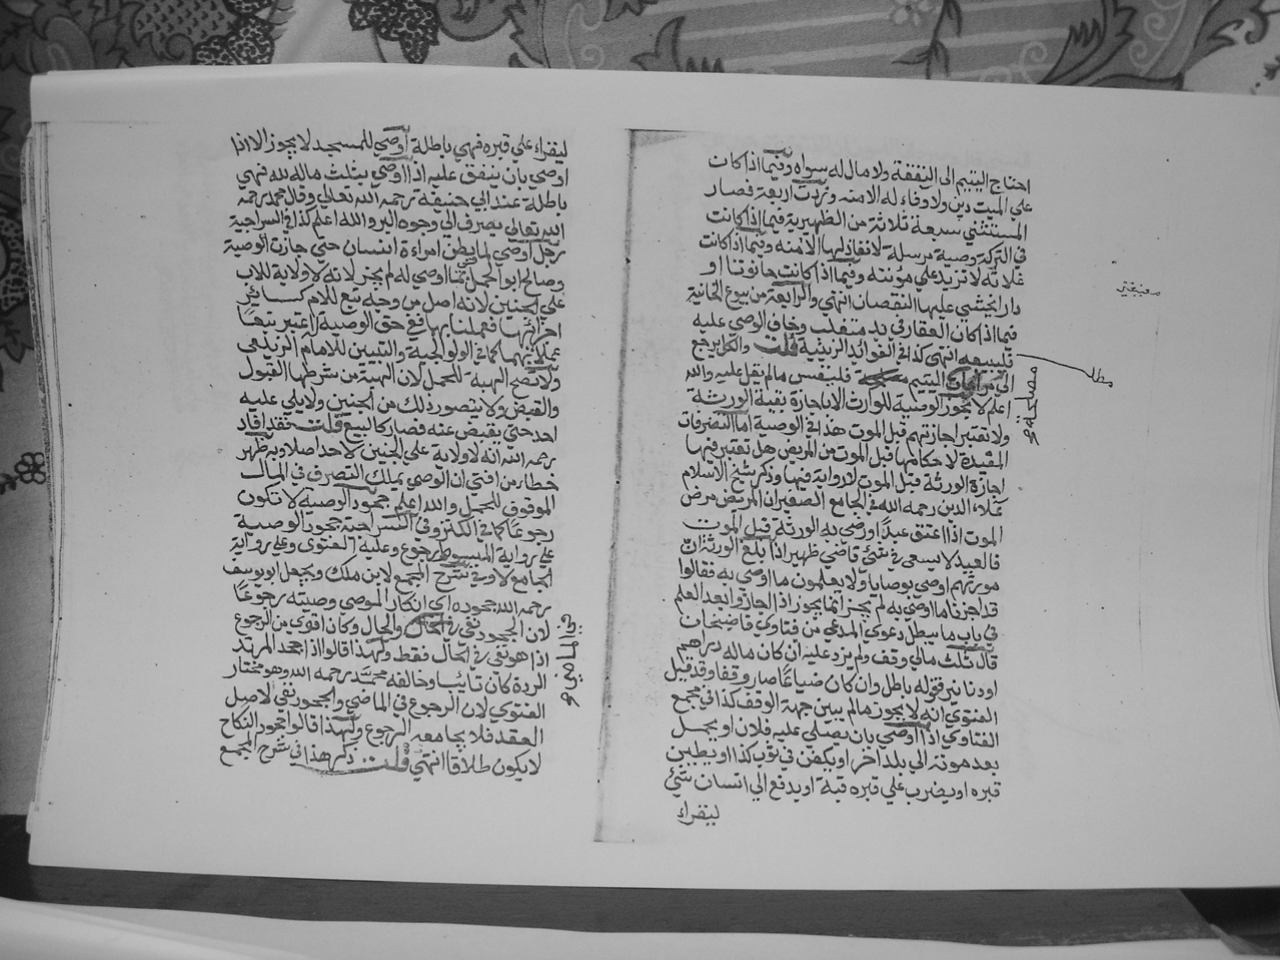 احتاج اليتيم الى النفقة ولا مال له سواه وفيما اذا كانت
علي الميت دين ولا وفاء له الا منه وزدت اربعة فصار
المستثنى سبعة ثلاثة من الظهيرية فيما اذا كانت
في التركة وصية مرسلة لا نفاذ لها الا منه وفيما اذا كانت
غلاته لا تزيد علي مؤنته وفيما اذا كانت حانوتا او
دار يخشي عليها النقصان انتهى والرابعة من بيوع الخانية
فيما اذا كان العقار في يد متغلب وخاف الوصي عليه
فله بيعه انتهى كذا في الفوائد الزينية قلت والكل يرجع
الى اليتيم فليقس ما لم يقل عليه والله
اعلم لا يجوز الوصية للوارث الا باجازة بقية الورثة
ولا تعتبر اجازتهم قبل الموت هذا في الوصية اما التصرفات
المفيدة لاحكامها قبل الموت من المريض هل تعتبر فيها
اجازة الورثة قبل الموت لا رواية فيها وذكر شيخ الاسلام
علاء الدين رحمه الله في الجامع الصغير ان المريض مرض
الموت اذا اعتق عبدا ورضي به الورثة قبل الموت
فالعبد لا يسعى في شئ قاضي ظهير اذا بلغ الورثة ان
مورثهم اوصي بوصايا ولا يعلمون ما اوصي به فقالوا
قد اجزنا ما اوصي به لم يجز انما يجوز اذا اجازوا بعد العلم
في باب ما يبطل دعوي المدعي من فتاوي قاضيخان
قال ثلث مالي وقف ولم يزد عليه ان كان ماله دراهم
او دنانير فقوله باطل وان كان ضياعا صار وقفا وقد قيل
الفتوي انه لا يجوز ما لم يبين جهة الوقف كذا في مجمع
الفتاوي اذا اوصي بان يصلي عليه فلان او يحمل
بعد موته الى بلد اخر او يكفن في ثوب كذا او يطين
قبره او يضرب علي قبره قبة او يدفع الي انسان شئ
ليقراء
مطلب
مصالحه
ليقراء علي قبره فهي باطلة اوصي للمسجد لا يجوز الا اذا
اوصي بان ينفق عليه اذا اوصي بثلث ماله لله فهي
باطلة عند ابي حنيفة رحمه الله تعالي وقال محمد رحمه
الله تعالي يصرف الى وجوه البر والله اعلم كذا في السراجية
رجل اوصي لما في بطن امراءة انسان حتي جازت الوصية
وصالح ابو الحمل عما اوصي له لم يجز لانه لا ولاية للاب
علي الجنين لانه اصل من وجه تبع للام كسائر
اجزائها فعملنا بها ففي حق الوصية اعتبر تبعا
عملا بهما كما في الولوالجية والتبيين للامام الزيلعي
ولا تصح الهبة للحمل لان الهبة من شرطها القبول
والقبض ولا يتصور ذلك من الجنين ولا يلي عليه
احد حتي يقبض عنه فصار كالبيع قلت فقد افاد
رحمه الله انه لا ولاية علي الجنين لاحد اصلا وبه ظهر
خطاء من افتي ان الوصي يملك التصرف في المال
الموقوف للحمل والله اعلم جحود الوصية لا تكون
رجوعا كما في الكنز وفي السراجية جحود الوصية
علي رواية المبسوط رجوع وعليه الفتوي وعلي رواية
الجامع لا وفي شرح المجمع لابن ملك ويجعل ابو يوسف
رحمه الله جحوده اي انكار الموصي وصيته رجوعا
لان الجحود نفي في الحال والحال وكان اقوي من الرجوع
اذا هو نفي في الحال فقط ولهذا قالوا اذا جحد المرتد
الردة كان تائبا وخالفه محمد رحمه الله وهو مختار
الفتوي لان الرجوع في الماضي والجحود نفي لاصل
العقد فلا يجامعه الرجوع ولهذا قالوا جحود النكاح
لا يكون طلاقا انتهي قلت ذكر هذا في شرح المجمع
في الماضي